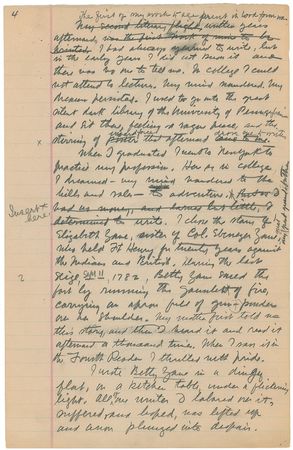 4
The first of my work to
My second literary flight, written years
afterward, was the first
I had always yearned to write, but
in the early years I did not know it and
there was no one to tell me. In college I could
not attend to lectures. My mind wandered. My
dreams persisted. I used to go into the great
silent dark library of the University of Pennsylvania
and sit there,
x
When I graduated I went to New York to
practice my profession. Here as in college
I dreamed — my mind wandered to the
hills and vales — to adventure.
Insert x here
had no money, and
determined to write. I chose the story of
Elizabeth Zane, sister of Col. Ebenezer Zane,
who held Ft Henry for twenty years against
the Indians and British. During the last
2
siege, 1782 Betty Zane saved the
fort by running the gauntlet of fire,
carrying an apron full of gun-powder
on her shoulder. My mother first told me
this story, and then I heard it and read it
afterward a thousand times. When I saw it in
the Fourth Reader I thrilled with pride.
I wrote Betty Zane in a dingy
flat, on a kitchen table, under a flickering
light. All one winter I labored over it,
suffered, and hoped, was lifted up
and anon plunged into despair.